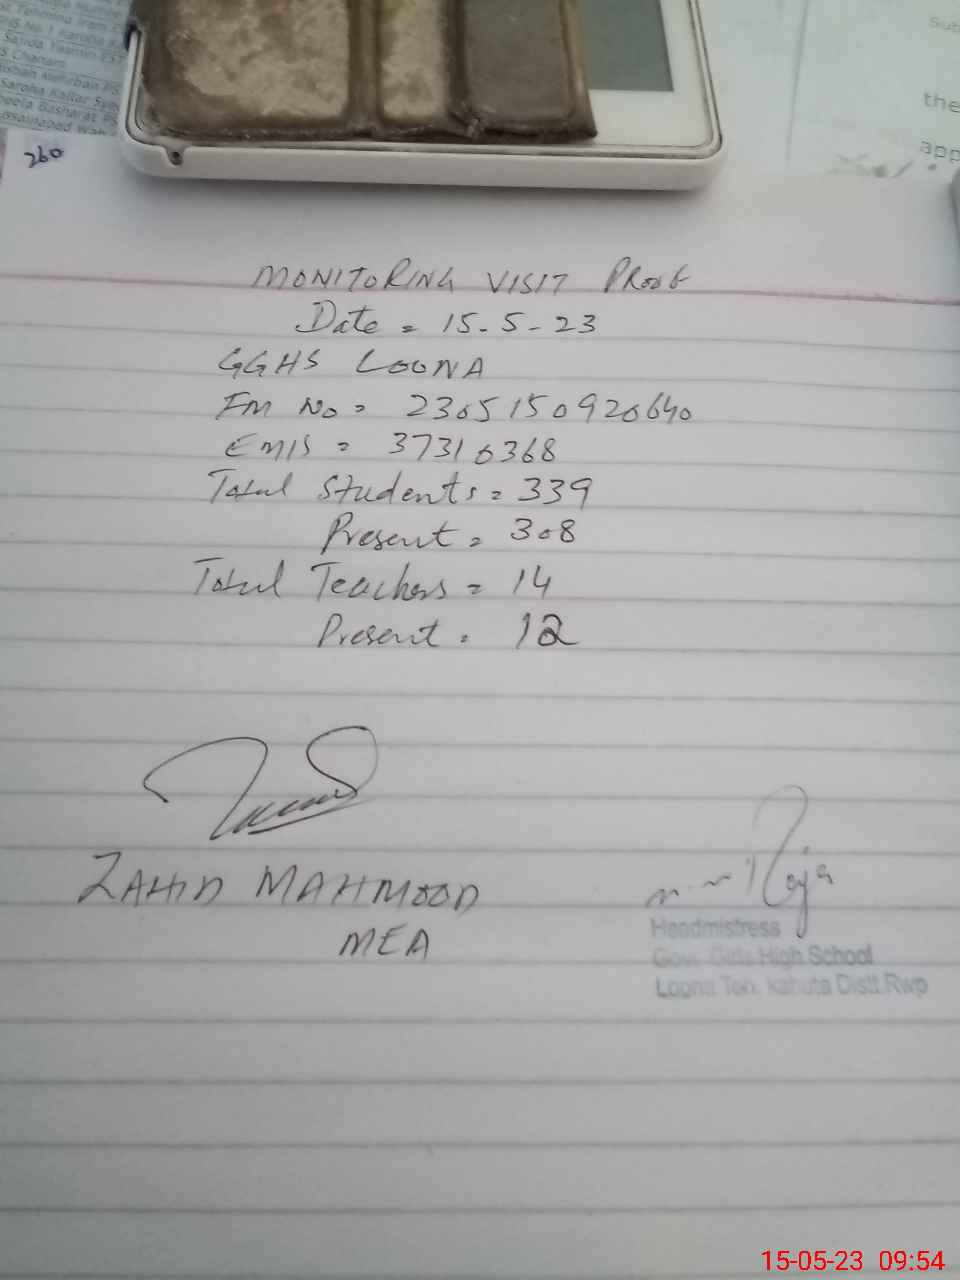 260
the
app
MONITORING VISIT PROOF
Date = 15-5-23
GGHS LOONA
Im No = 2305150920640
EMIS = 37310368
Total Students = 339
Present = 308
Total Teachers = 14
Present = 12
ZAHID MAHMOOD
MEA
Headmistress
Govt. Girls High School
Loona Teh. kahuta Distt.Rwp
15-05-23 09:54